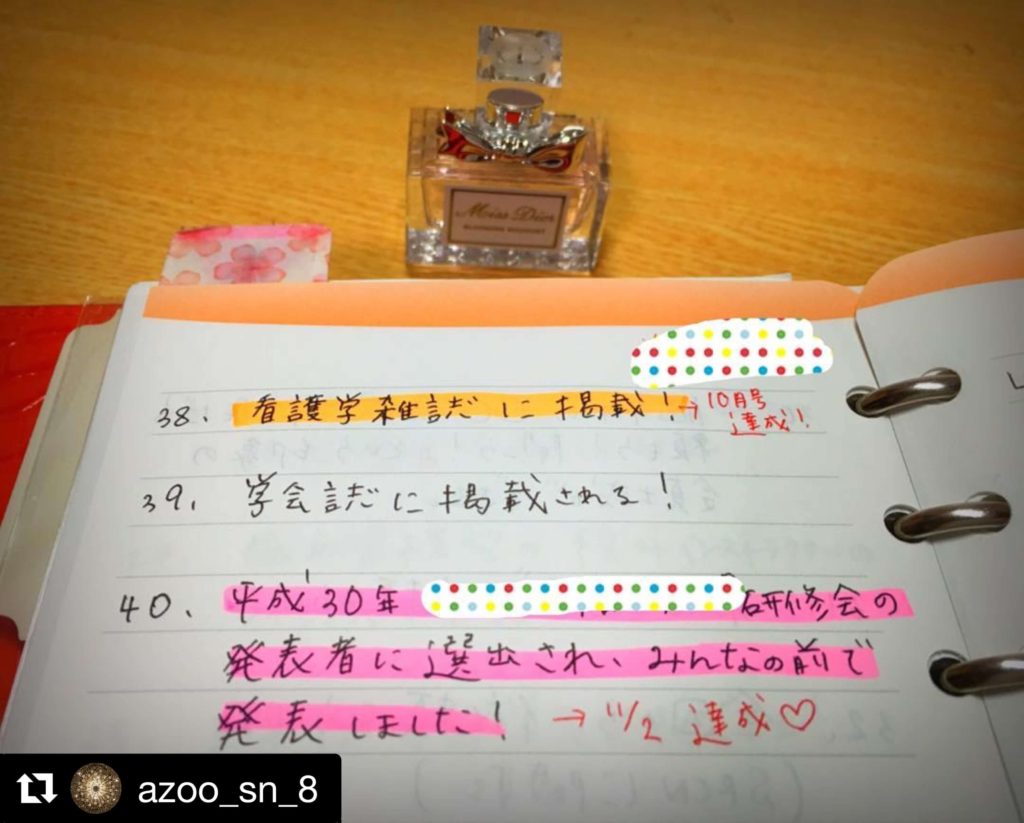 Miss Dior
BLOOMING BOUQUET
38. 看護学雑誌に掲載!→10月号
達成!
39. 学会誌に掲載される!
40. 平成30年 研修会の
発表者に選出され、みんなの前で
発表しました! → 11/2 達成♡
azoo_sn_8